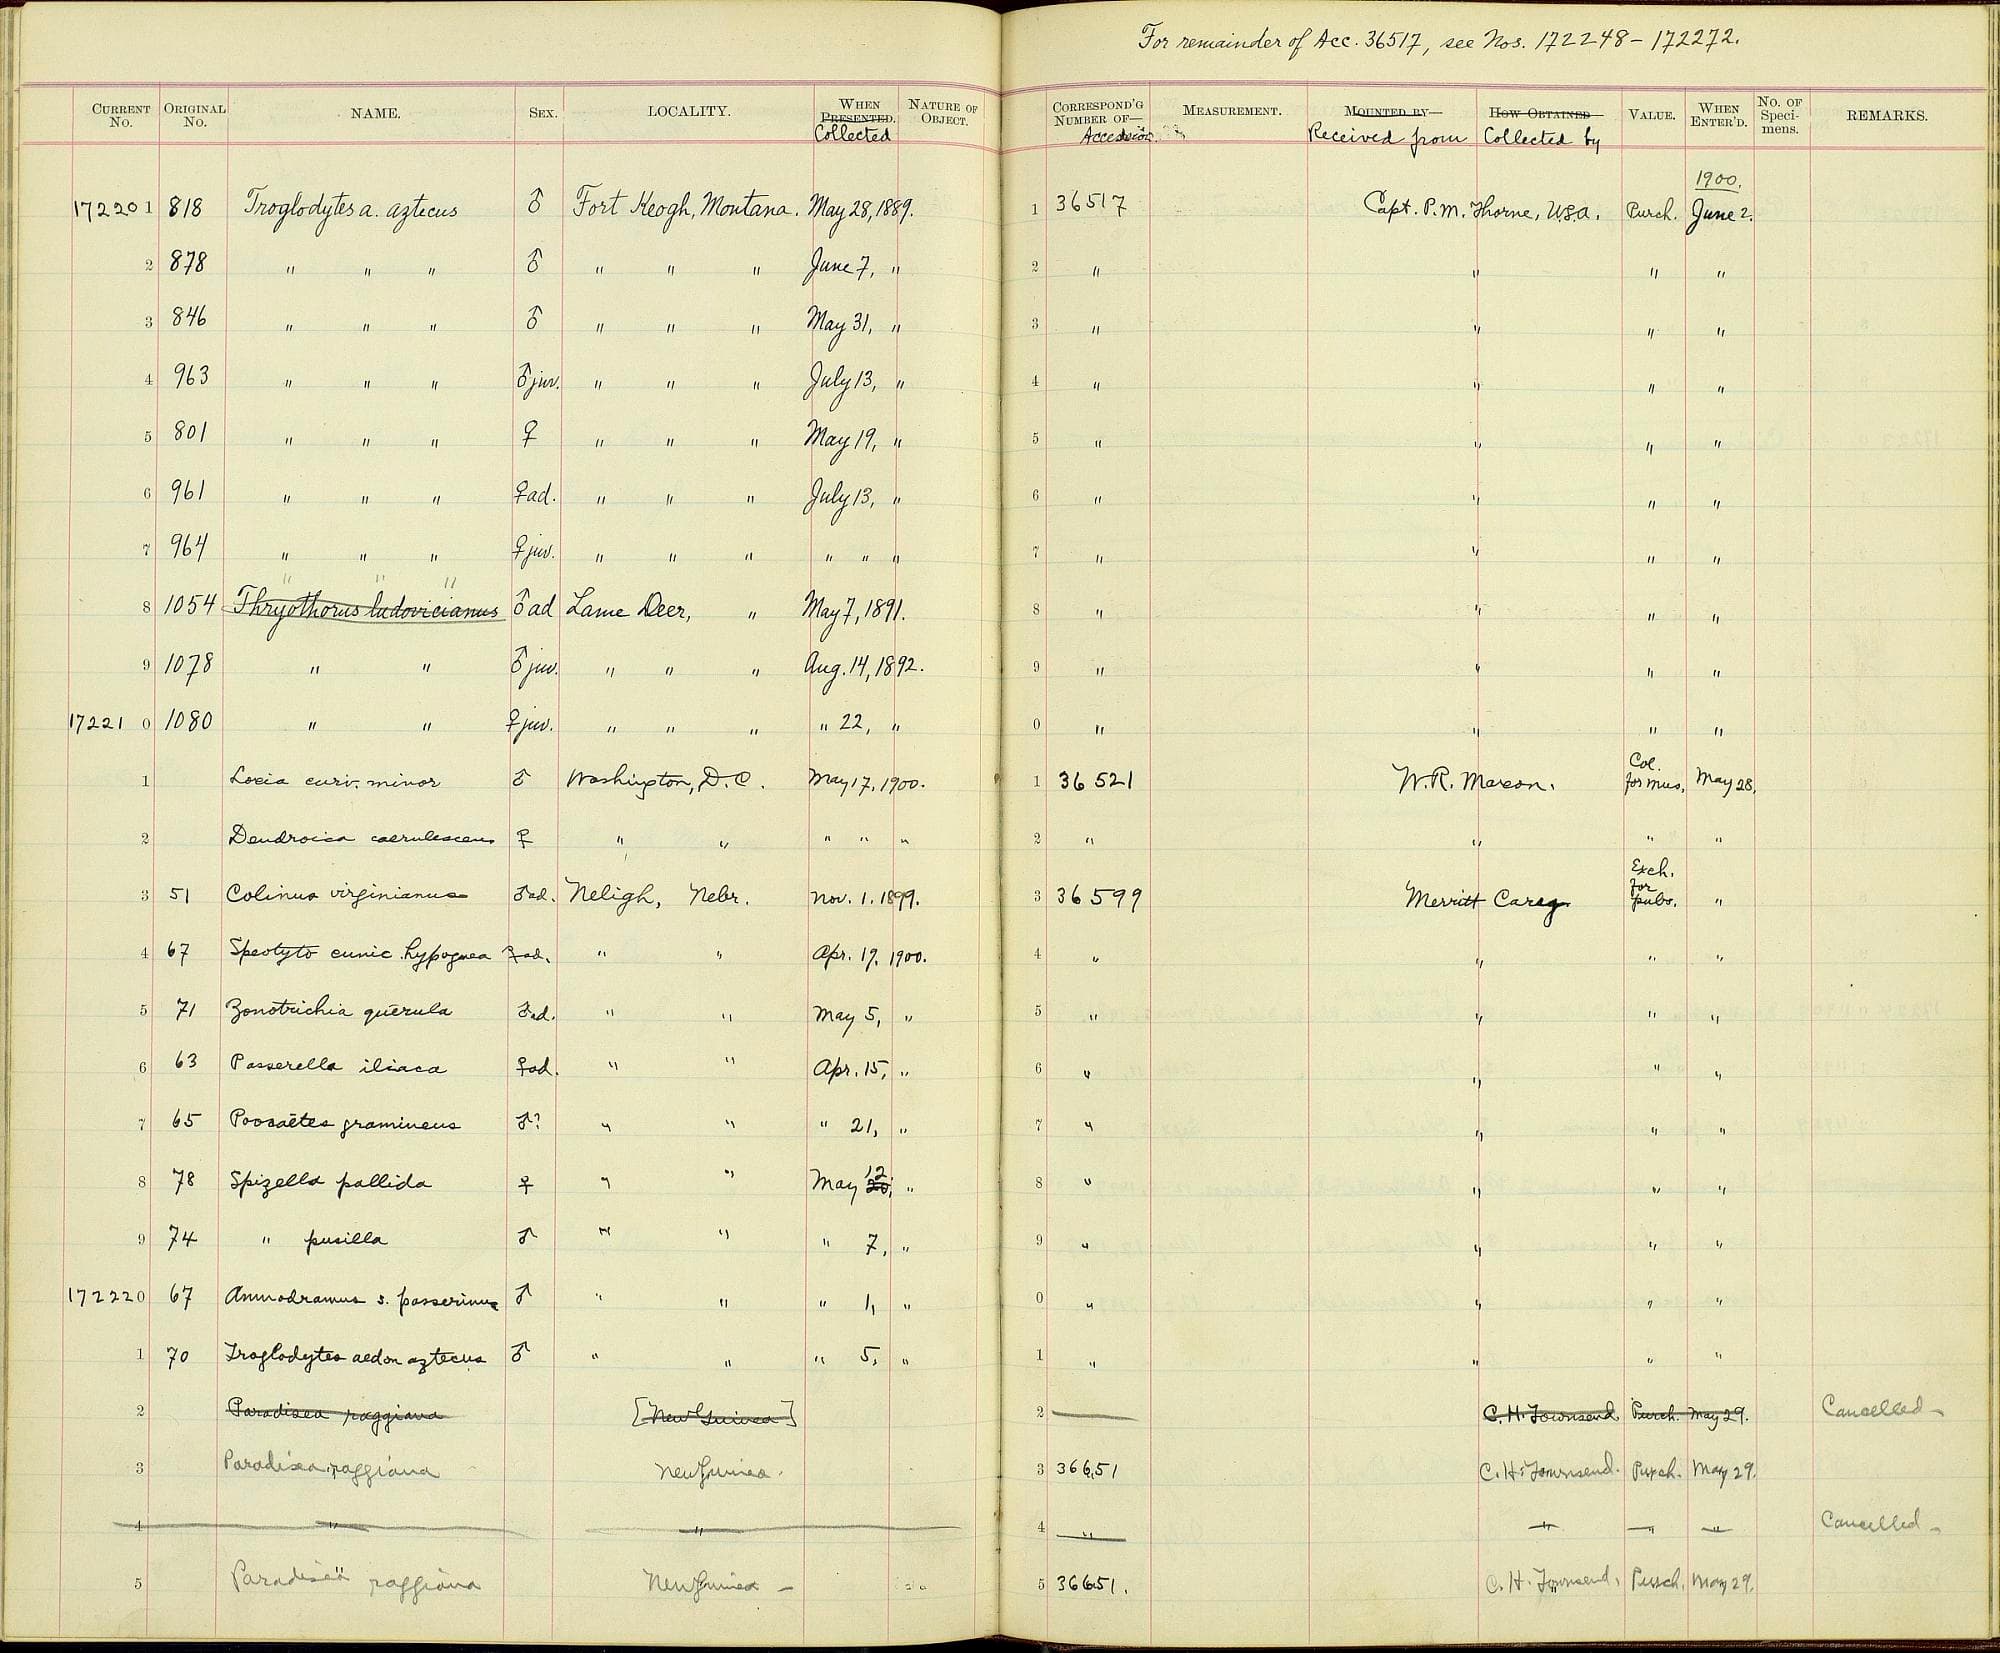 For remainder of Acc. 36517, see Nos. 172248–172272.
CURRENT No. ORIGINAL No. NAME. SEX. LOCALITY. WHEN PRESENTED. Collected NATURE OF OBJECT. CORRESPOND'G NUMBER OF— Accession MEASUREMENT. MOUNTED BY— Received from HOW OBTAINED Collected by VALUE. WHEN ENTER'D. No. OF Speci- mens. REMARKS.
1900.
172201 818 Troglodytes a. aztecus ♂ Fort Keogh, Montana. May 28, 1889. 1 36517 Capt. P. M. Thorne, U.S.A. Purch. June 2.
2 878 " " " ♂ " " " June 7, " 2 " " " "
3 846 " " " ♂ " " " May 31, " 3 " " " "
4 963 " " " ♂ juv. " " " July 13, " 4 " " " "
5 801 " " " ♀ " " " May 19, " 5 " " " "
6 961 " " " ♀ ad. " " " July 13, " 6 " " " "
7 964 " " " ♀ juv. " " " " " " 7 " " " "
" " "
8 1054 Thryothorus ludovicianus ♂ ad Lame Deer, " May 7, 1891. 8 " " " "
9 1078 " " ♂ juv. " " " Aug. 14, 1892. 9 " " " "
172210 1080 " " ♀ juv. " " " " 22, " 0 " " " "
1 Loxia curv. minor ♂ Washington, D.C. May 17, 1900. 1 36521 W. R. Maxon. Col. for Mus. May 28.
2 Dendroica caerulescens ♀ " " " " " 2 " " " "
3 51 Colinus virginianus ♂ ad. Neligh, Nebr. Nov. 1. 1899. 3 36599 Merritt Carey Exch. for pubs. "
4 67 Speotyto cunic. hypogaea ♀ ad. " " Apr. 19, 1900. 4 " " " "
5 71 Zonotrichia querula ♂ ad. " " May 5, " 5 " " " "
6 63 Passerella iliaca ♀ ad. " " Apr. 15, " 6 " " " "
7 65 Pooecaëtes gramineus ♂? " " " 21, " 7 " " " "
8 78 Spizella pallida ♀ " " May 20, 12 " 8 " " " "
9 74 " pusilla ♂ " " " 7, " 9 " " " "
172220 67 Ammodramus s. passerinus ♂ " " " 1, " 0 " " " "
1 70 Troglodytes aedon aztecus ♂ " " " 5, " 1 " " " "
2 Paradisea raggiana [New Guinea] 2 C. H. Townsend Purch. May 29. Cancelled
3 Paradisea raggiana New Guinea. 3 36651 C. H. Townsend. Purch. May 29.
4 " " 4 " " " " Cancelled
5 Paradisea raggiana New Guinea 5 36651. C. H. Townsend, Purch. May 29.